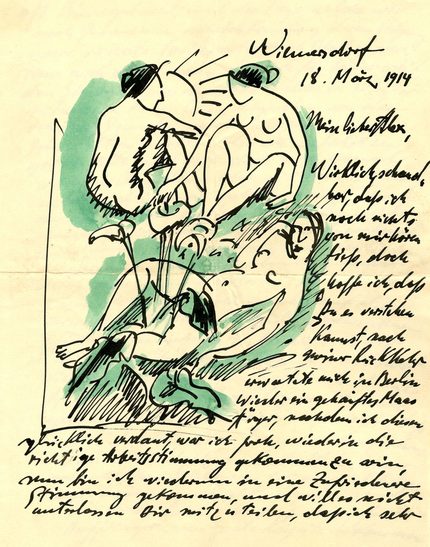 Wilmersdorf
18. März 1914
Mein lieber Alex,
Wirklich schand-
bar, daß ich
noch nichts
von mir hören
ließ, doch
hoffe ich, daß
Du es verstehen
kannst, nach
meiner Rückkehr
erwartete mich in Berlin
wieder ein gehäuftes Maas
Ärger, nachdem ich diesen
glücklich verdaut, war ich froh, wieder in die
richtige Arbeitsstimmung gekommen zu sein,
nun bin ich wiederum in eine zufriedene
Stimmung gekommen, und will es nicht
unterlassen Dir mitzuteilen, daß ich sehr